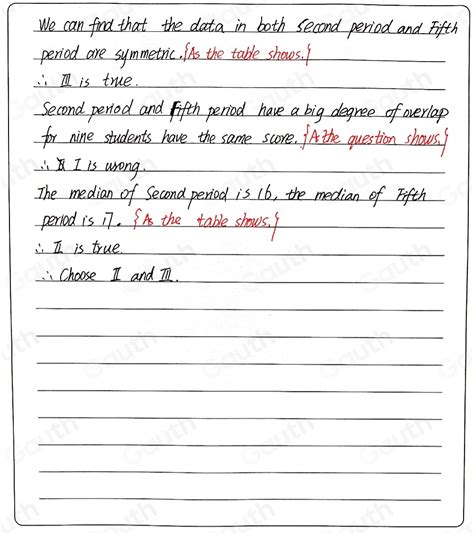 We can find that the data in both Second period and Fifth
period are symmetric. {As the table shows.}
∴ Ⅲ is true.
Second period and Fifth period have a big degree of overlap
for nine students have the same score. {As the question shows.}
∴ I is wrong.
The median of Second period is 16, the median of Fifth
period is 17. {As the table shows.}
∴ Ⅱ is true.
∴ Choose Ⅱ and Ⅲ.
Gauth